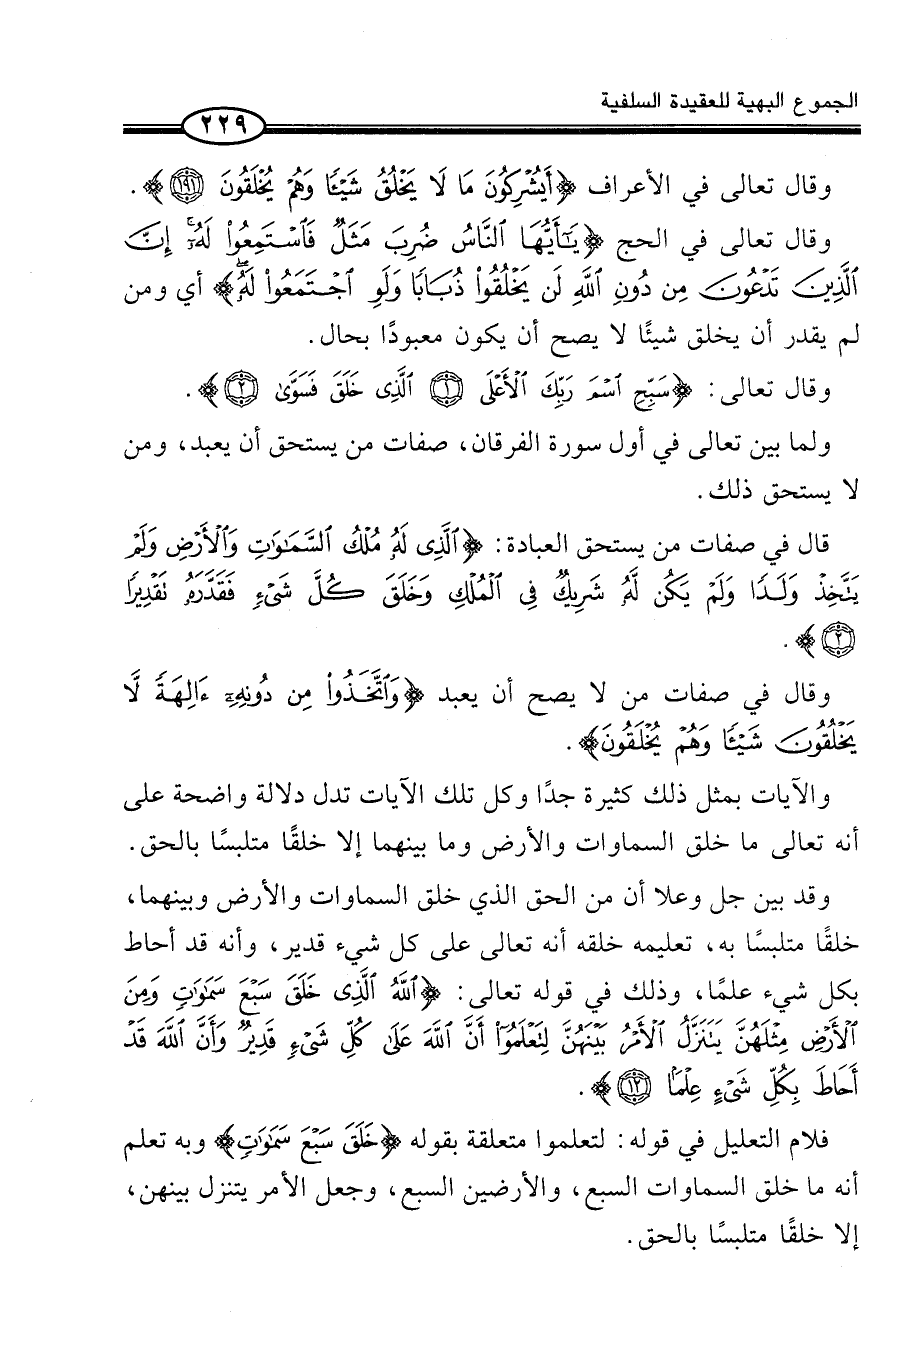 الجموع البهية للعقيدة السلفية
٢٢٩
وقال تعالى في الأعراف ﴿أَيُشْرِكُونَ مَا لَا يَخْلُقُ شَيْـًٔا وَهُمْ يُخْلَقُونَ ١٩١﴾.
وقال تعالى في الحج ﴿يَٰٓأَيُّهَا ٱلنَّاسُ ضُرِبَ مَثَلٌ فَٱسْتَمِعُوا۟ لَهُۥٓ إِنَّ
ٱلَّذِينَ تَدْعُونَ مِن دُونِ ٱللَّهِ لَن يَخْلُقُوا۟ ذُبَابًا وَلَوِ ٱجْتَمَعُوا۟ لَهُۥ﴾ أي ومن
لم يقدر أن يخلق شيئًا لا يصح أن يكون معبودًا بحال.
وقال تعالى: ﴿سَبِّحِ ٱسْمَ رَبِّكَ ٱلْأَعْلَى ١ ٱلَّذِى خَلَقَ فَسَوَّىٰ ٢﴾.
ولما بين تعالى في أول سورة الفرقان، صفات من يستحق أن يعبد، ومن
لا يستحق ذلك.
قال في صفات من يستحق العبادة: ﴿ٱلَّذِى لَهُۥ مُلْكُ ٱلسَّمَٰوَٰتِ وَٱلْأَرْضِ وَلَمْ
يَتَّخِذْ وَلَدًا وَلَمْ يَكُن لَّهُۥ شَرِيكٌ فِى ٱلْمُلْكِ وَخَلَقَ كُلَّ شَىْءٍ فَقَدَّرَهُۥ تَقْدِيرًا
٢﴾.
وقال في صفات من لا يصح أن يعبد ﴿وَٱتَّخَذُوا۟ مِن دُونِهِۦٓ ءَالِهَةً لَّا
يَخْلُقُونَ شَيْـًٔا وَهُمْ يُخْلَقُونَ﴾.
والآيات بمثل ذلك كثيرة جدًا وكل تلك الآيات تدل دلالة واضحة على
أنه تعالى ما خلق السماوات والأرض وما بينهما إلا خلقًا متلبسًا بالحق.
وقد بين جل وعلا أن من الحق الذي خلق السماوات والأرض وبينهما،
خلقًا متلبسًا به، تعليمه خلقه أنه تعالى على كل شيء قدير، وأنه قد أحاط
بكل شيء علمًا، وذلك في قوله تعالى: ﴿ٱللَّهُ ٱلَّذِى خَلَقَ سَبْعَ سَمَٰوَٰتٍ وَمِنَ
ٱلْأَرْضِ مِثْلَهُنَّ يَتَنَزَّلُ ٱلْأَمْرُ بَيْنَهُنَّ لِتَعْلَمُوٓا۟ أَنَّ ٱللَّهَ عَلَىٰ كُلِّ شَىْءٍ قَدِيرٌ وَأَنَّ ٱللَّهَ قَدْ
أَحَاطَ بِكُلِّ شَىْءٍ عِلْمًۢا ١٢﴾.
فلام التعليل في قوله: لتعلموا متعلقة بقوله ﴿خَلَقَ سَبْعَ سَمَٰوَٰتٍ﴾ وبه تعلم
أنه ما خلق السماوات السبع، والأرضين السبع، وجعل الأمر يتنزل بينهن،
إلا خلقًا متلبسًا بالحق.